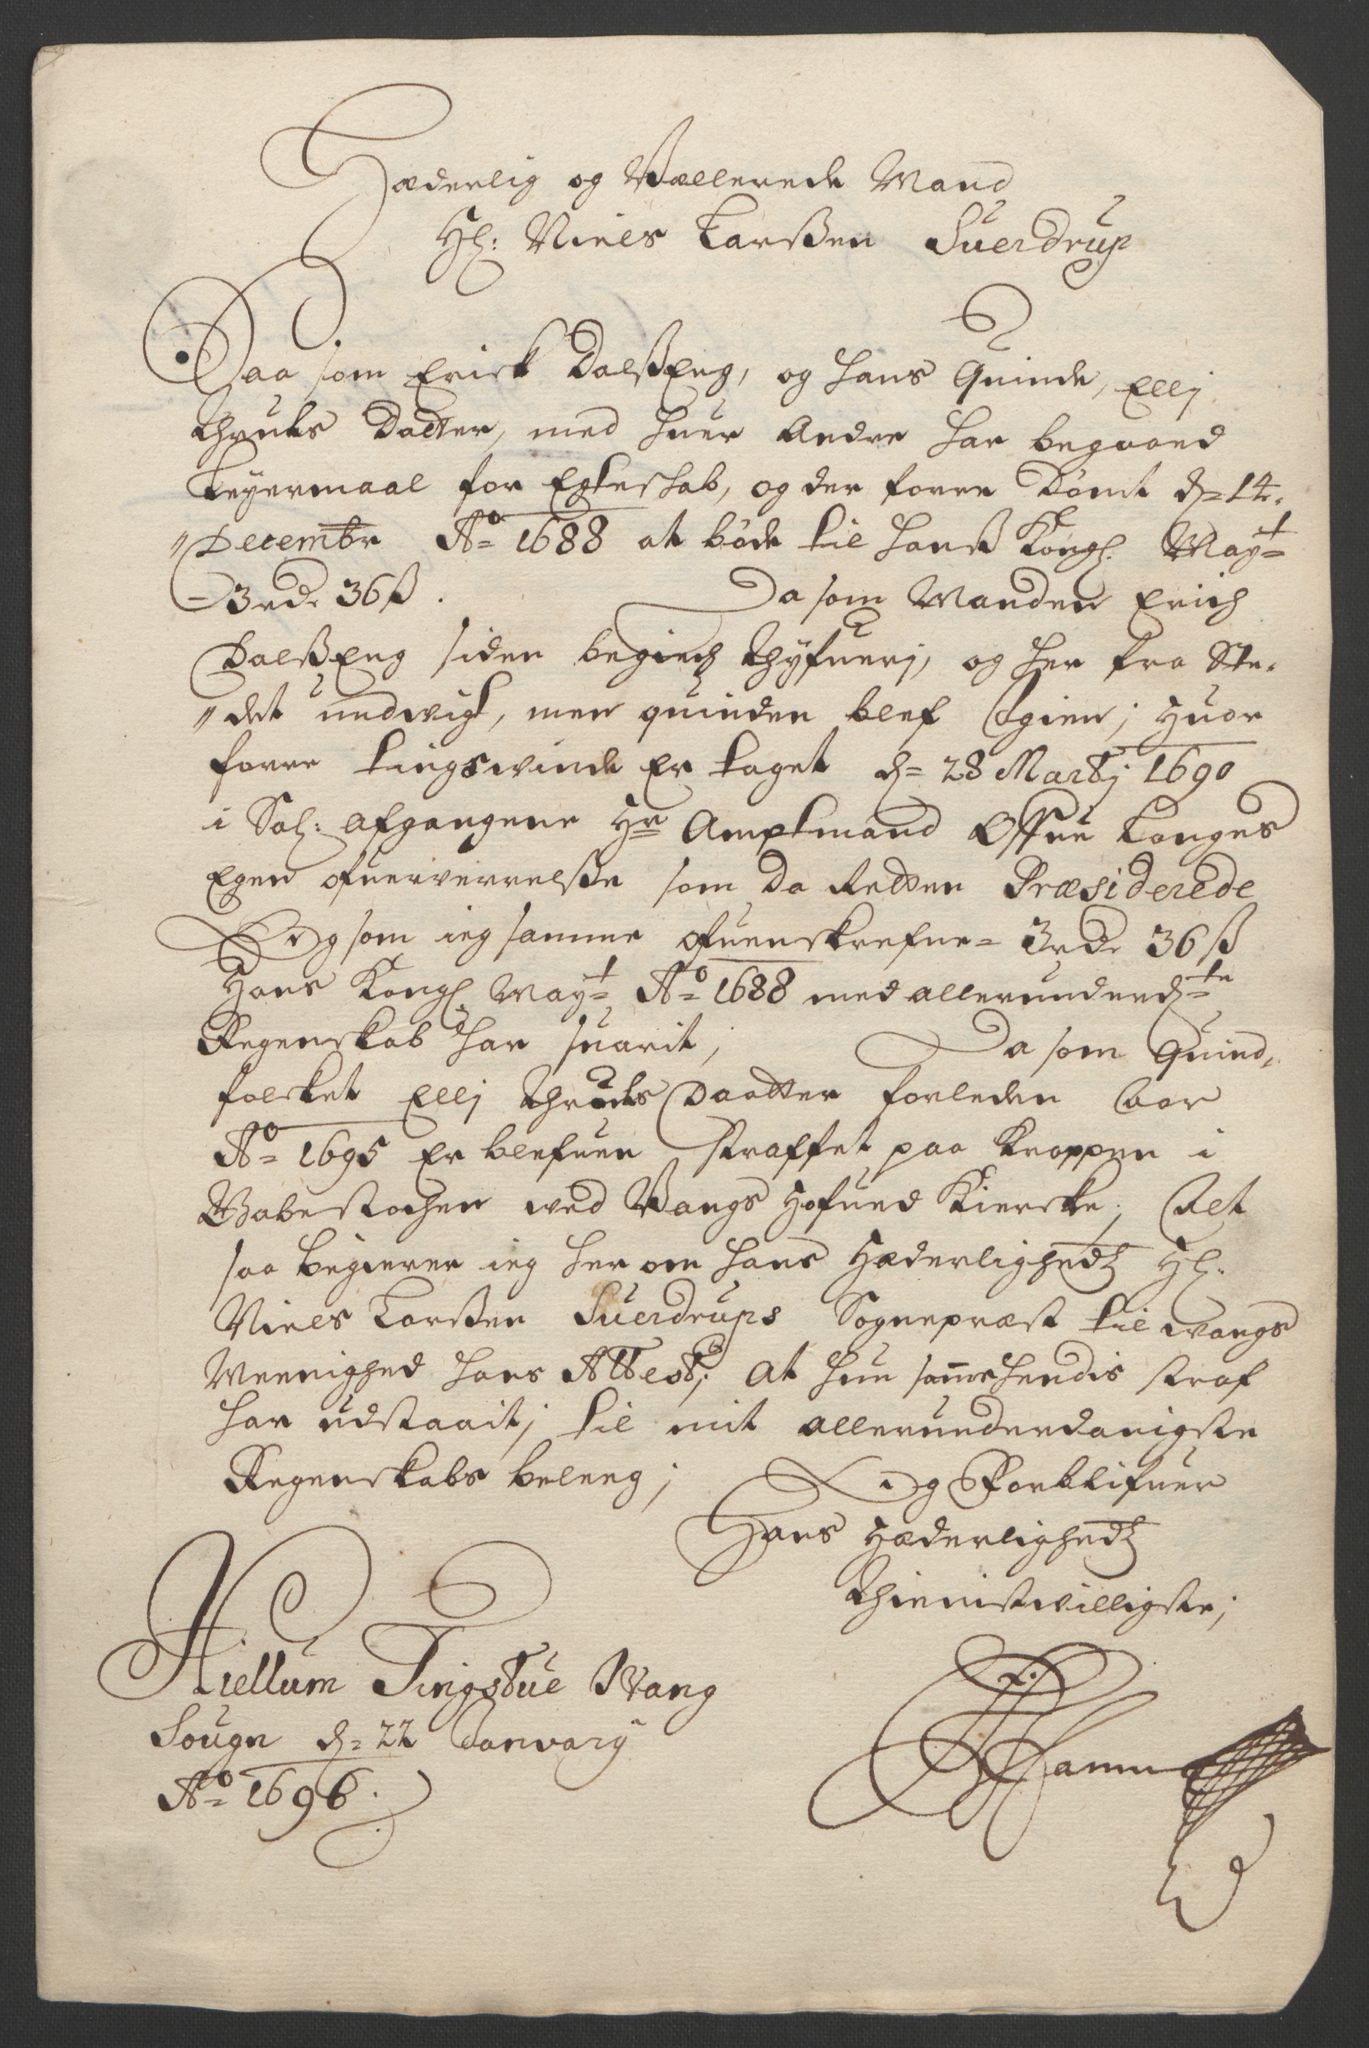 Hæderlig og Wællerede Mand
Hl: Niels Larßen Suerdrup
Saa som Erick Dalßeng, og hans Quinde, Ellj
Thruls Datter, med huer andre har begaaed
Leyermaal for Egteskab, og der forre Dømt d= 14.
"Decembr A:o 1688 at bøde til Hanß Kongl. May:t
- 3 rdr 36 ß. Da som Manden Erich
Dalßeng siden begiech Thyfuerj, og her fra Ste-
"det undwigt, men quinden blef Igien; Huor
forre tingswinde Er taget d= 28 Martij 1690
i Sal: afgangene Hr Amptmand Offue Langes
Egen ofuerverrelße som da Retten Præsiderede
Og som ieg samme ofuenskrefne= 3 rdr 36 ß
Hans Kongl. May:t A:o 1688 med allerunderd:te
Regenskab har suarit; Da som Quind-
folcket Ellj Thruls Daatter forleden Aar
A:o 1695 Er blefuen straffet paa Kroppen i
Gabestochen ved Vangs Hofued Kiercke; Alt
saa begierer ieg her om hans Hæderligheds Hl:
Niels Larßen Suerdrups Sognepræst til Wangs
Meenighed hans Attest; at hun samme hendis straf
har udstaait; til mit allerunderdanigste
Regenskabs beleng; Og Forblifuer
Hans Hæderligheds
Thienistwilligste;
Kiellum Tingstue Wang
Sougn d= 22 Janvarij
A:o 1696.